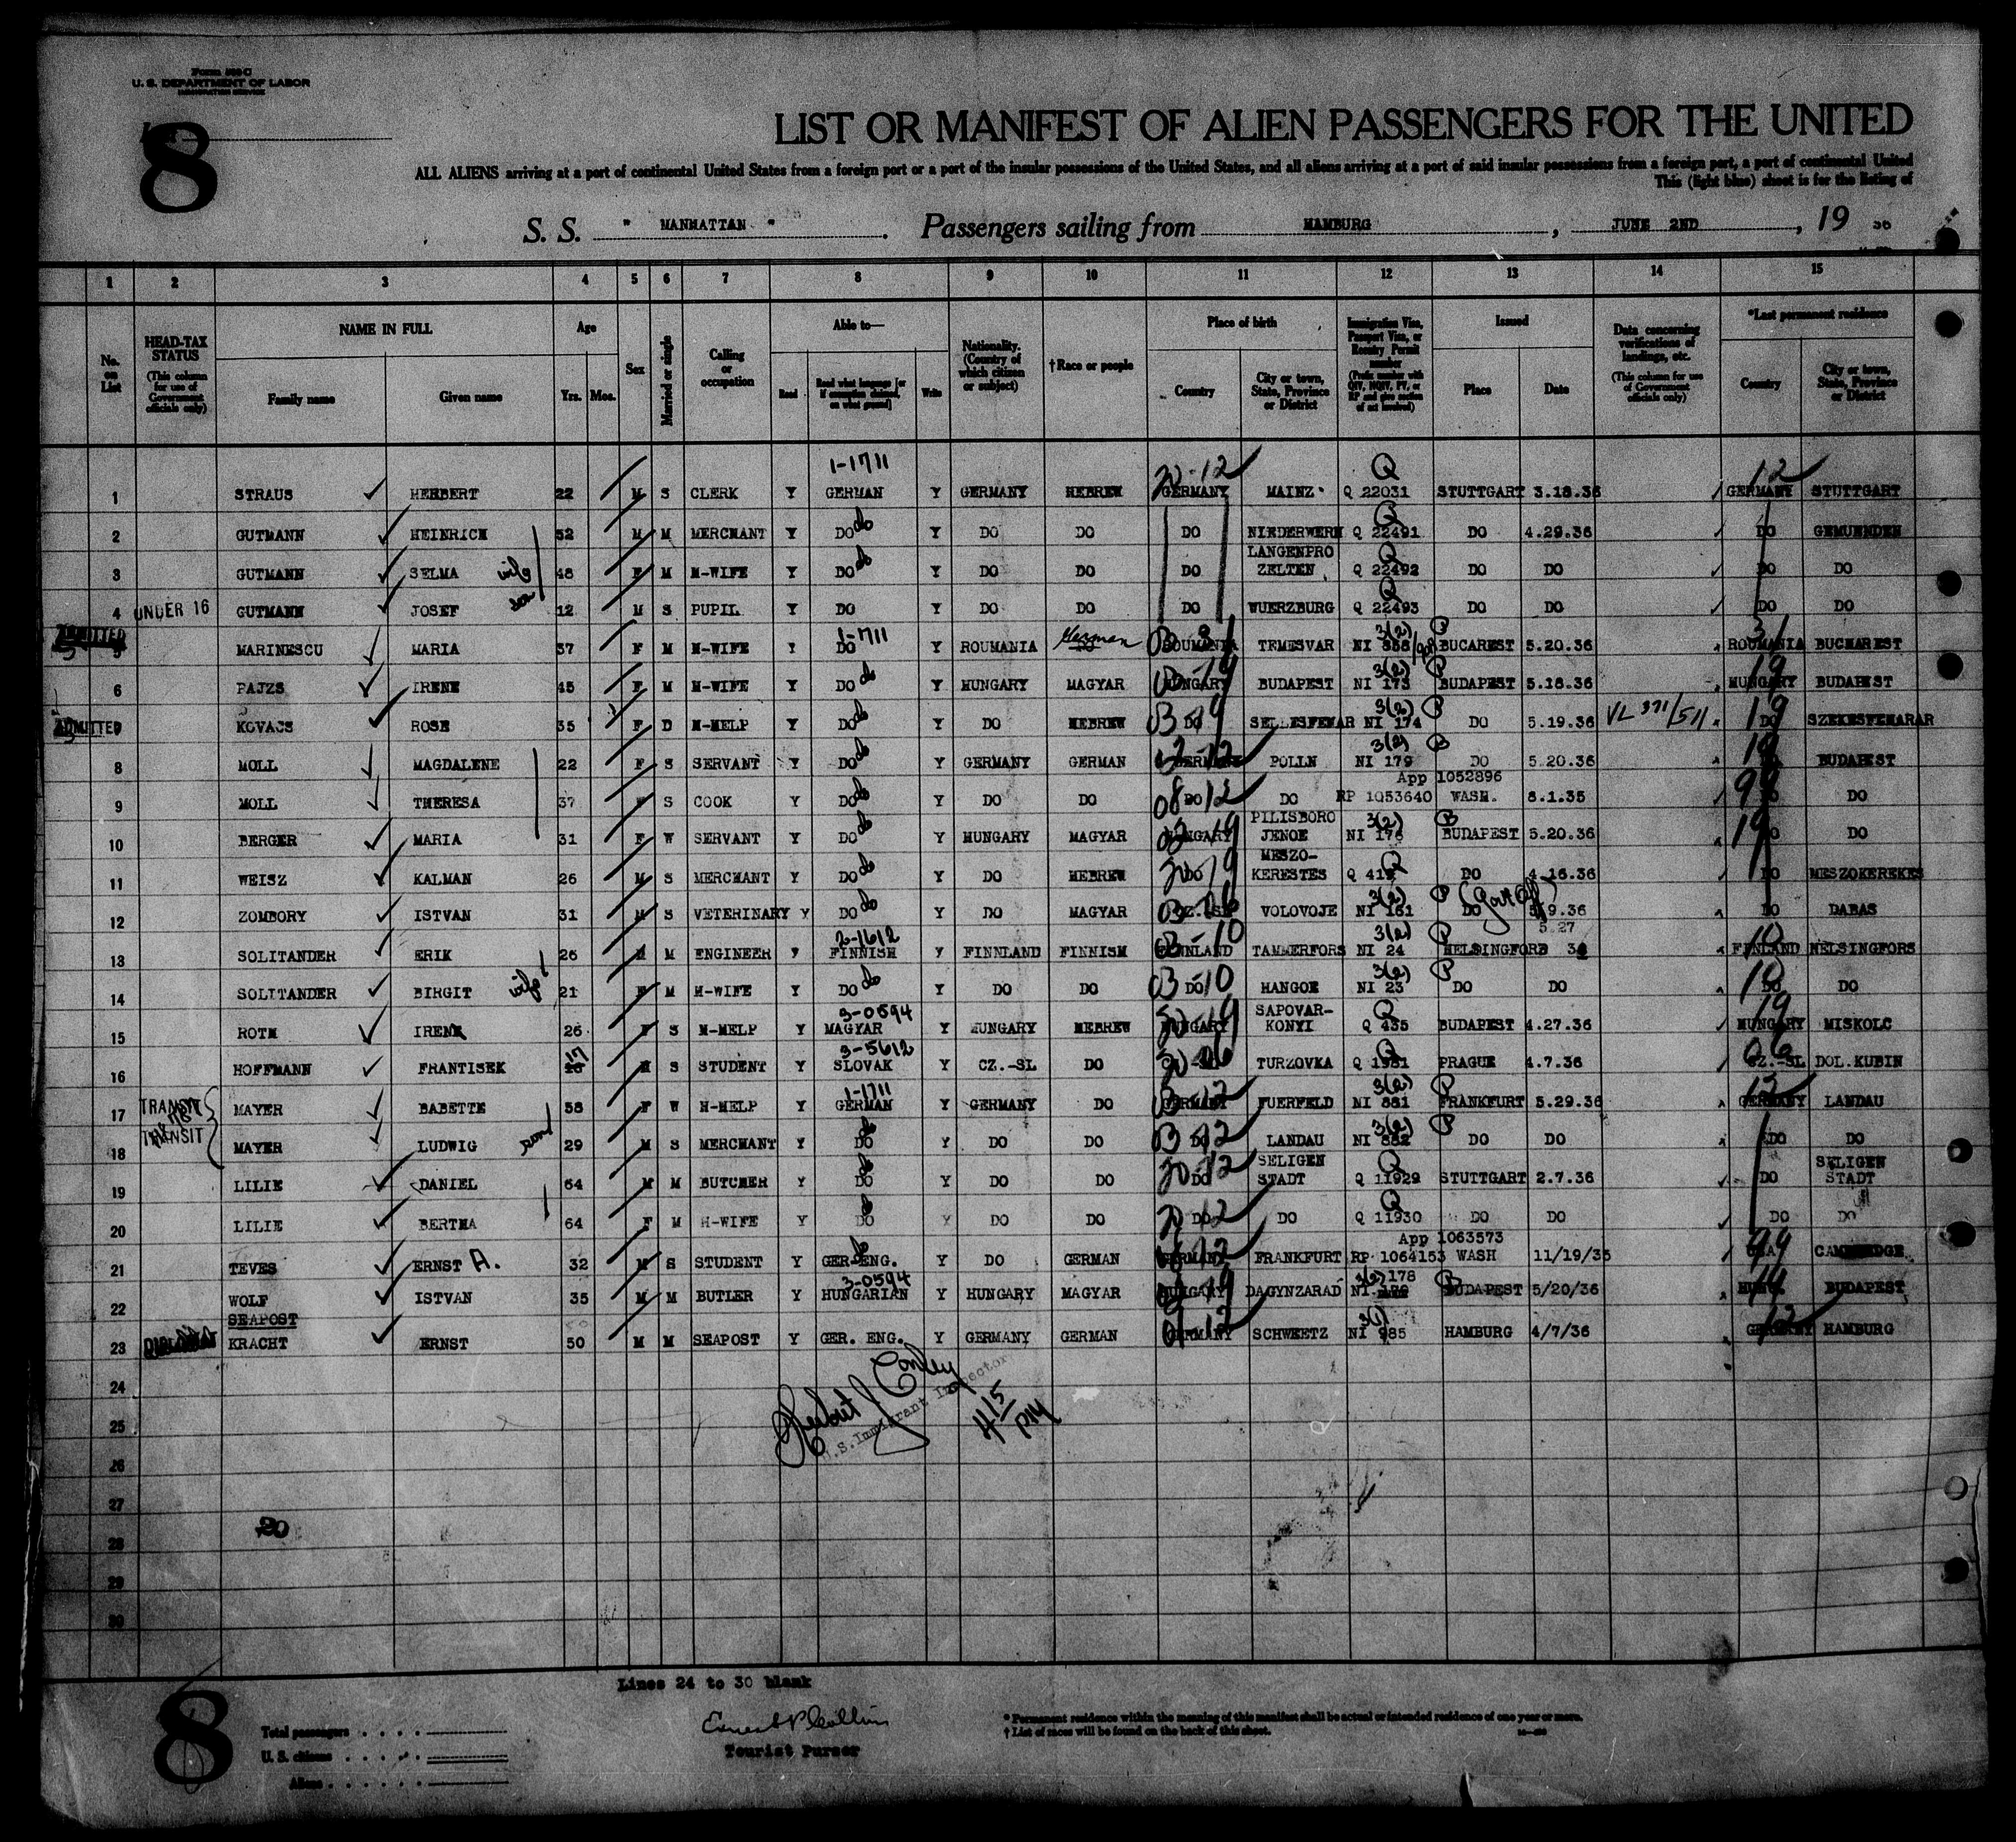 Form 500 C
U. S. DEPARTMENT OF LABOR
IMMIGRATION SERVICE
8
LIST OR MANIFEST OF ALIEN PASSENGERS FOR THE UNITED
ALL ALIENS arriving at a port of continental United States from a foreign port or a port of the insular possessions of the United States, and all aliens arriving at a port of said insular possessions from a foreign port, a port of continental United
This (light blue) sheet is for the listing of
S. S. " MANHATTAN " . Passengers sailing from HAMBURG , JUNE 2ND , 19 36
1 2 3 4 5 6 7 8 9 10 11 12 13 14 15
No. on List
HEAD-TAX STATUS (This column for use of Government officials only)
NAME IN FULL Family name Given name
Age Yrs. Mos.
Sex
Married or single
Calling or occupation
Able to— Read Read what language [or if exemption claimed, on what ground] Write
Nationality. (Country of which citizen or subject)
†Race or people
Place of birth Country City or town, State, Province or District
Immigration Visa, Passport Visa, or Reentry Permit number (Prefix number with QIV, NQIV, PV, or RP and give section of act involved)
Issued Place Date
Data concerning verifications of landings, etc. (This column for use of Government officials only)
*Last permanent residence Country City or town, State, Province or District
1-1711 20-12 Q 12
1 STRAUS HERBERT 22 M S CLERK Y GERMAN Y GERMANY HEBREW GERMANY MAINZ Q 22031 STUTTGART 3.18.36 GERMANY STUTTGART
2 GUTMANN HEINRICH 52 M M MERCHANT Y DO do Y DO DO DO NIEDERWERN Q 22491 DO 4.29.36 DO GEMUENDEN
3 GUTMANN SELMA wife 48 F M H-WIFE Y DO do Y DO DO DO LANGENPRO ZELTEN Q 22492 DO DO DO DO
4 UNDER 16 GUTMANN JOSEF son 12 M S PUPIL Y DO Y DO DO DO WUERZBURG Q 22493 DO DO DO DO
ADMITTED 5 MARINESCU MARIA 37 F M H-WIFE Y 1-711 DO Y ROUMANIA DO German ROUMANIA TEMESVAR 3(2) NI 858 BUCAREST 5.20.36 31 ROUMANIA BUCHAREST
6 PAJZS IRENE 45 F M H-WIFE Y DO do Y HUNGARY MAGYAR HUNGARY BUDAPEST 3(2) NI 173 BUDAPEST 5.18.36 19 HUNGARY BUDAPEST
ADMITTED KOVACS ROSE 35 F D H-HELP Y DO do Y DO HEBREW DO SELLESFEHAR 3(2) NI 174 DO 5.19.36 VL 371/511 19 DO SZEKESFEHARAR
8 MOLL MAGDALENE 22 F S SERVANT Y DO do Y GERMANY GERMAN GERMANY POLLN 3(2) NI 179 DO 5.20.36 19 BUDAPEST
9 MOLL THERESA 37 S COOK Y DO do Y DO DO DO DO App 1052896 RP 1053640 WASH. 8.1.35 99 DO DO
10 BERGER MARIA 31 F W SERVANT Y DO do Y HUNGARY MAGYAR HUNGARY PILISBORO JENOE 3(2) NI 176 BUDAPEST 5.20.36 19 DO DO
11 WEISZ KALMAN 26 M S MERCHANT Y DO do Y DO HEBREW DO MESZO-KERESTES Q DO 4.16.36 DO MESZOKEREKES
12 ZOMBORY ISTVAN 31 M S VETERINARY Y DO do Y DO MAGYAR CZ.-SL VOLOVOJE 3(2) NI 161 DO (Govt Off) 5.9.36 DO DABAS
13 SOLITANDER ERIK 26 M M ENGINEER Y 2-1612 FINNISH Y FINNLAND FINNISH FINNLAND TAMMERFORS 3(2) NI 24 HELSINGFORS 5.27 36 10 FINLAND HELSINGFORS
14 SOLITANDER BIRGIT wife 21 F M H-WIFE Y DO do Y DO DO DO HANGOE 3(2) NI 23 DO DO 10 DO DO
15 ROTH IRENE 26 F S H-HELP Y 3-0594 MAGYAR Y HUNGARY HEBREW HUNGARY SAPOVAR-KONYI Q 435 BUDAPEST 4.27.36 19 HUNGARY MISKOLC
16 HOFFMANN FRANTISEK 17 M S STUDENT Y 3-5612 SLOVAK Y CZ.-SL DO TURZOVKA Q 1981 PRAGUE 4.7.36 06 CZ.-SL DOL.KUBIN
17 TRANSIT MAYER BABETTE 58 F W H-HELP Y 1-1711 GERMAN Y GERMANY DO GERMANY FUERFELD 3(2) NI 881 FRANKFURT 5.29.36 12 GERMANY LANDAU
18 TRANSIT MAYER LUDWIG son 29 M S MERCHANT Y DO Y DO DO DO LANDAU 3(2) NI 882 DO DO DO DO
19 LILIE DANIEL 64 M M BUTCHER Y DO Y DO DO DO SELIGEN STADT Q 11929 STUTTGART 2.7.36 DO SELIGEN STADT
20 LILIE BERTHA 64 F M H-WIFE Y DO Y DO DO DO DO Q 11930 DO DO DO DO
21 TEVES ERNST A. 32 M S STUDENT Y GER-ENG. Y DO GERMAN GERMANY FRANKFURT App 1063573 RP 1064153 WASH 11/19/35 99 USA CAMBRIDGE
22 WOLF ISTVAN 35 M M BUTLER Y 3-0594 HUNGARIAN Y HUNGARY MAGYAR HUNGARY DAGYNZARAD 3(2) 178 NI BUDAPEST 5/20/36 BUDAPEST
SEAPOST
23 DIPLOMAT KRACHT ERNST 50 M M SEAPOST Y GER. ENG. Y GERMANY GERMAN GERMANY SCHWEETZ 3(1) NI 985 HAMBURG 4/7/36 12 GERMANY HAMBURG
24
Herbert J Conley
U.S. Immigrant Inspector
415 PM
25
26
27
20
28
29
30
Lines 24 to 30 blank
8
Total passengers
U. S. citizens
Aliens
Tourist Purser
* Permanent residence within the meaning of this manifest shall be actual or intended residence of one year or more.
† List of races will be found on the back of this sheet.